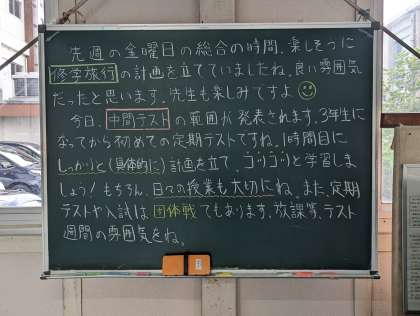 先週の金曜日の総合の時間、楽しそうに
修学旅行の計画を立てていましたね。良い雰囲気
だったと思います。先生も楽しみですよ
今日、中間テストの範囲が発表されます。3年生に
なってから初めての定期テストですね。1時間目に
しっかりと(具体的に)計画を立て、コツコツと学習しま
しょう!もちろん、日々の授業も大切にね。また、定期
テストや入試は団体戦でもあります。放課等、テスト
週間の雰囲気をね。